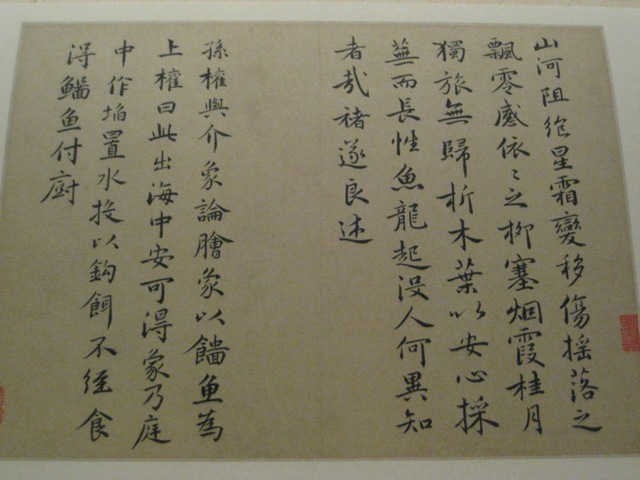 山河阻絶星霜變移傷摇落之
飄零感依〻之柳塞烟霞桂月
獨旅無歸折木葉以安心採
蕪而長性魚龍起没人何異知
者哉褚遂良述
孫權與介象論膾象以鯔魚為
上權曰此出海中安可得象乃庭
中作埳置水投以鈎餌不經食
得鯔魚付廚